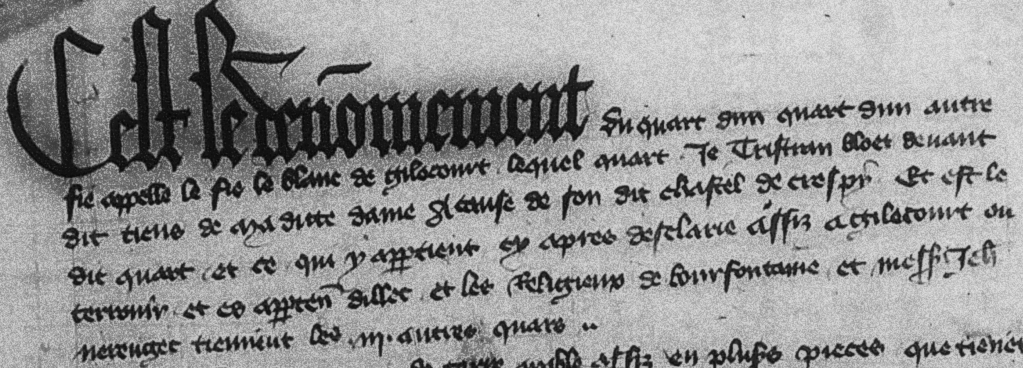 Cest le denomement du quart dun quart dun autre
fie appelle le fie le blanc de gilocourt lequel quart Je Tristran bloet devant
dit tieng de ma ditte dame A cause de son dit chastel de crespy Et est le
dit quart et ce qui y appartient cy apres desclarie assiz a gilocourt ou
terrouir et es apparten dillec et les Religieux de bourfontaine et mess Jeh
tiennent les iij autres quars
terre assiz en plusrs pieces que tienent